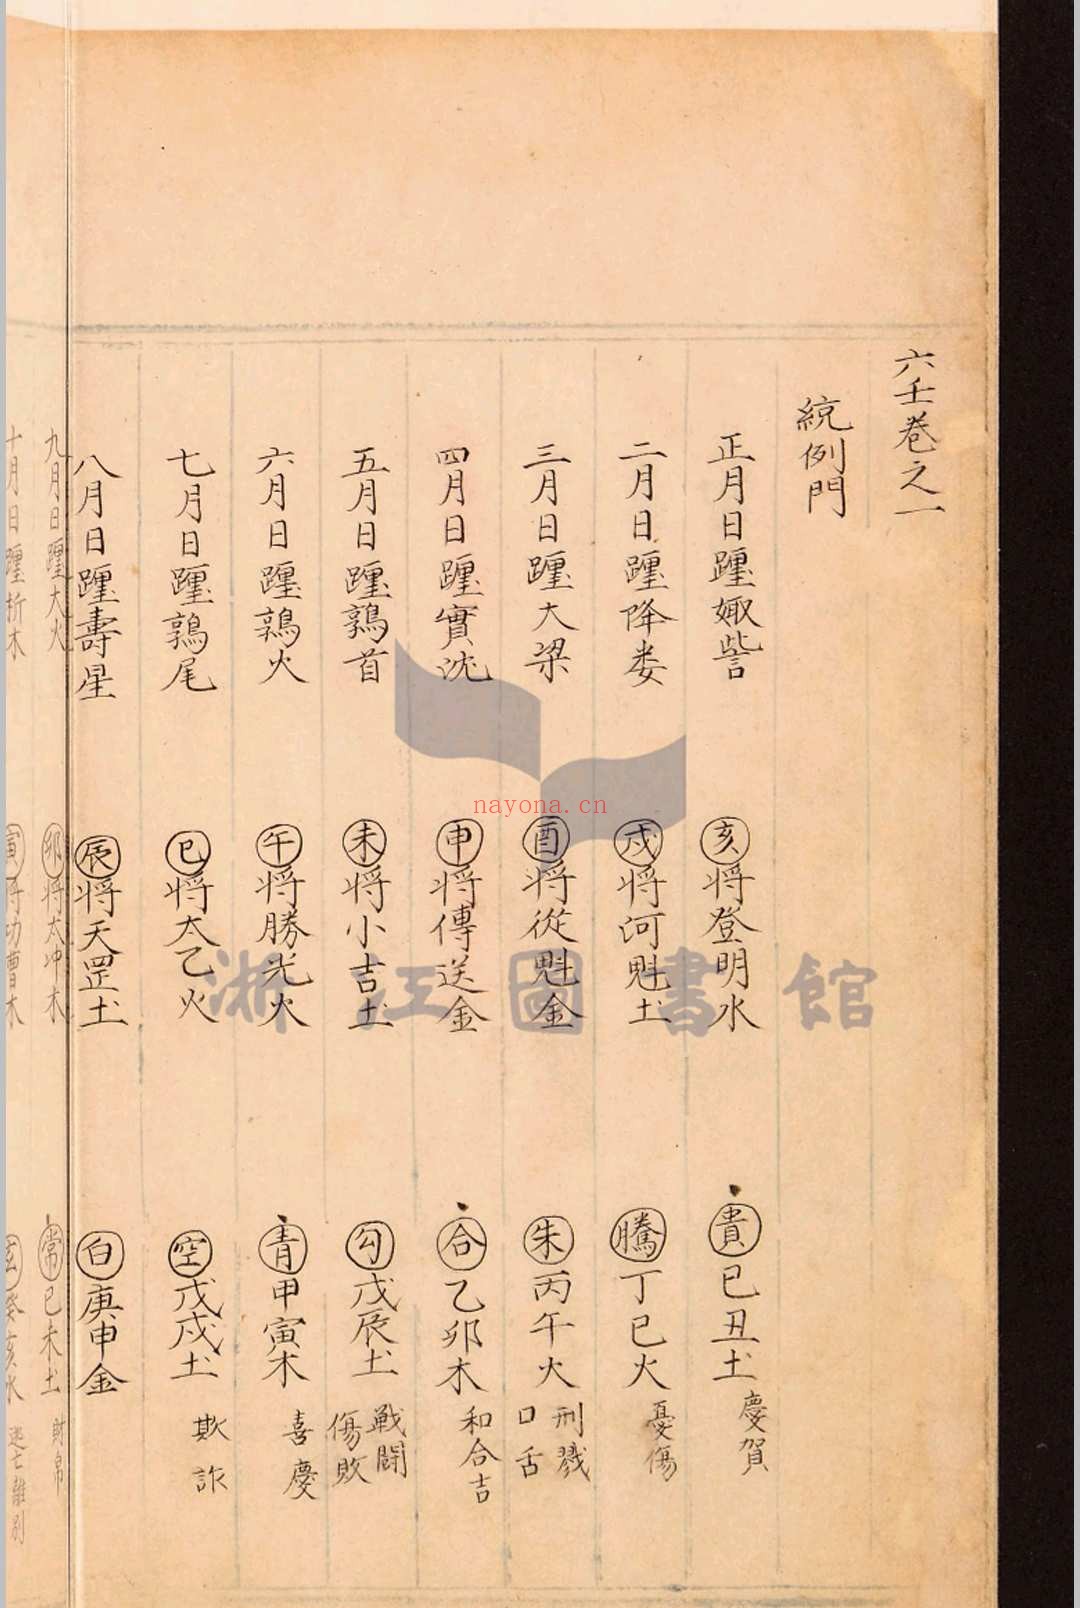 六壬卷之一
統例門
正月日躔娵訾 亥將登明水 貴己丑土 慶賀
二月日躔降婁 戌將河魁土 騰丁巳火 憂傷
三月日躔大梁 酉將從魁金 朱丙午火 刑戮口舌
四月日躔實沈 申將傳送金 合乙卯木 和合吉
五月日躔鶉首 未將小吉土 勾戊辰土 戰鬪傷敗
六月日躔鶉火 午將勝光火 青甲寅木 喜慶
七月日躔鶉尾 巳將太乙火 空戊戌土 欺詐
八月日躔壽星 辰將天罡土 白庚申金
九月日躔大火 卯將太冲木 常己未土 財帛
十月日躔析木 寅將功曹木 玄癸亥水 離別
nayona.cn
浙江圖書館